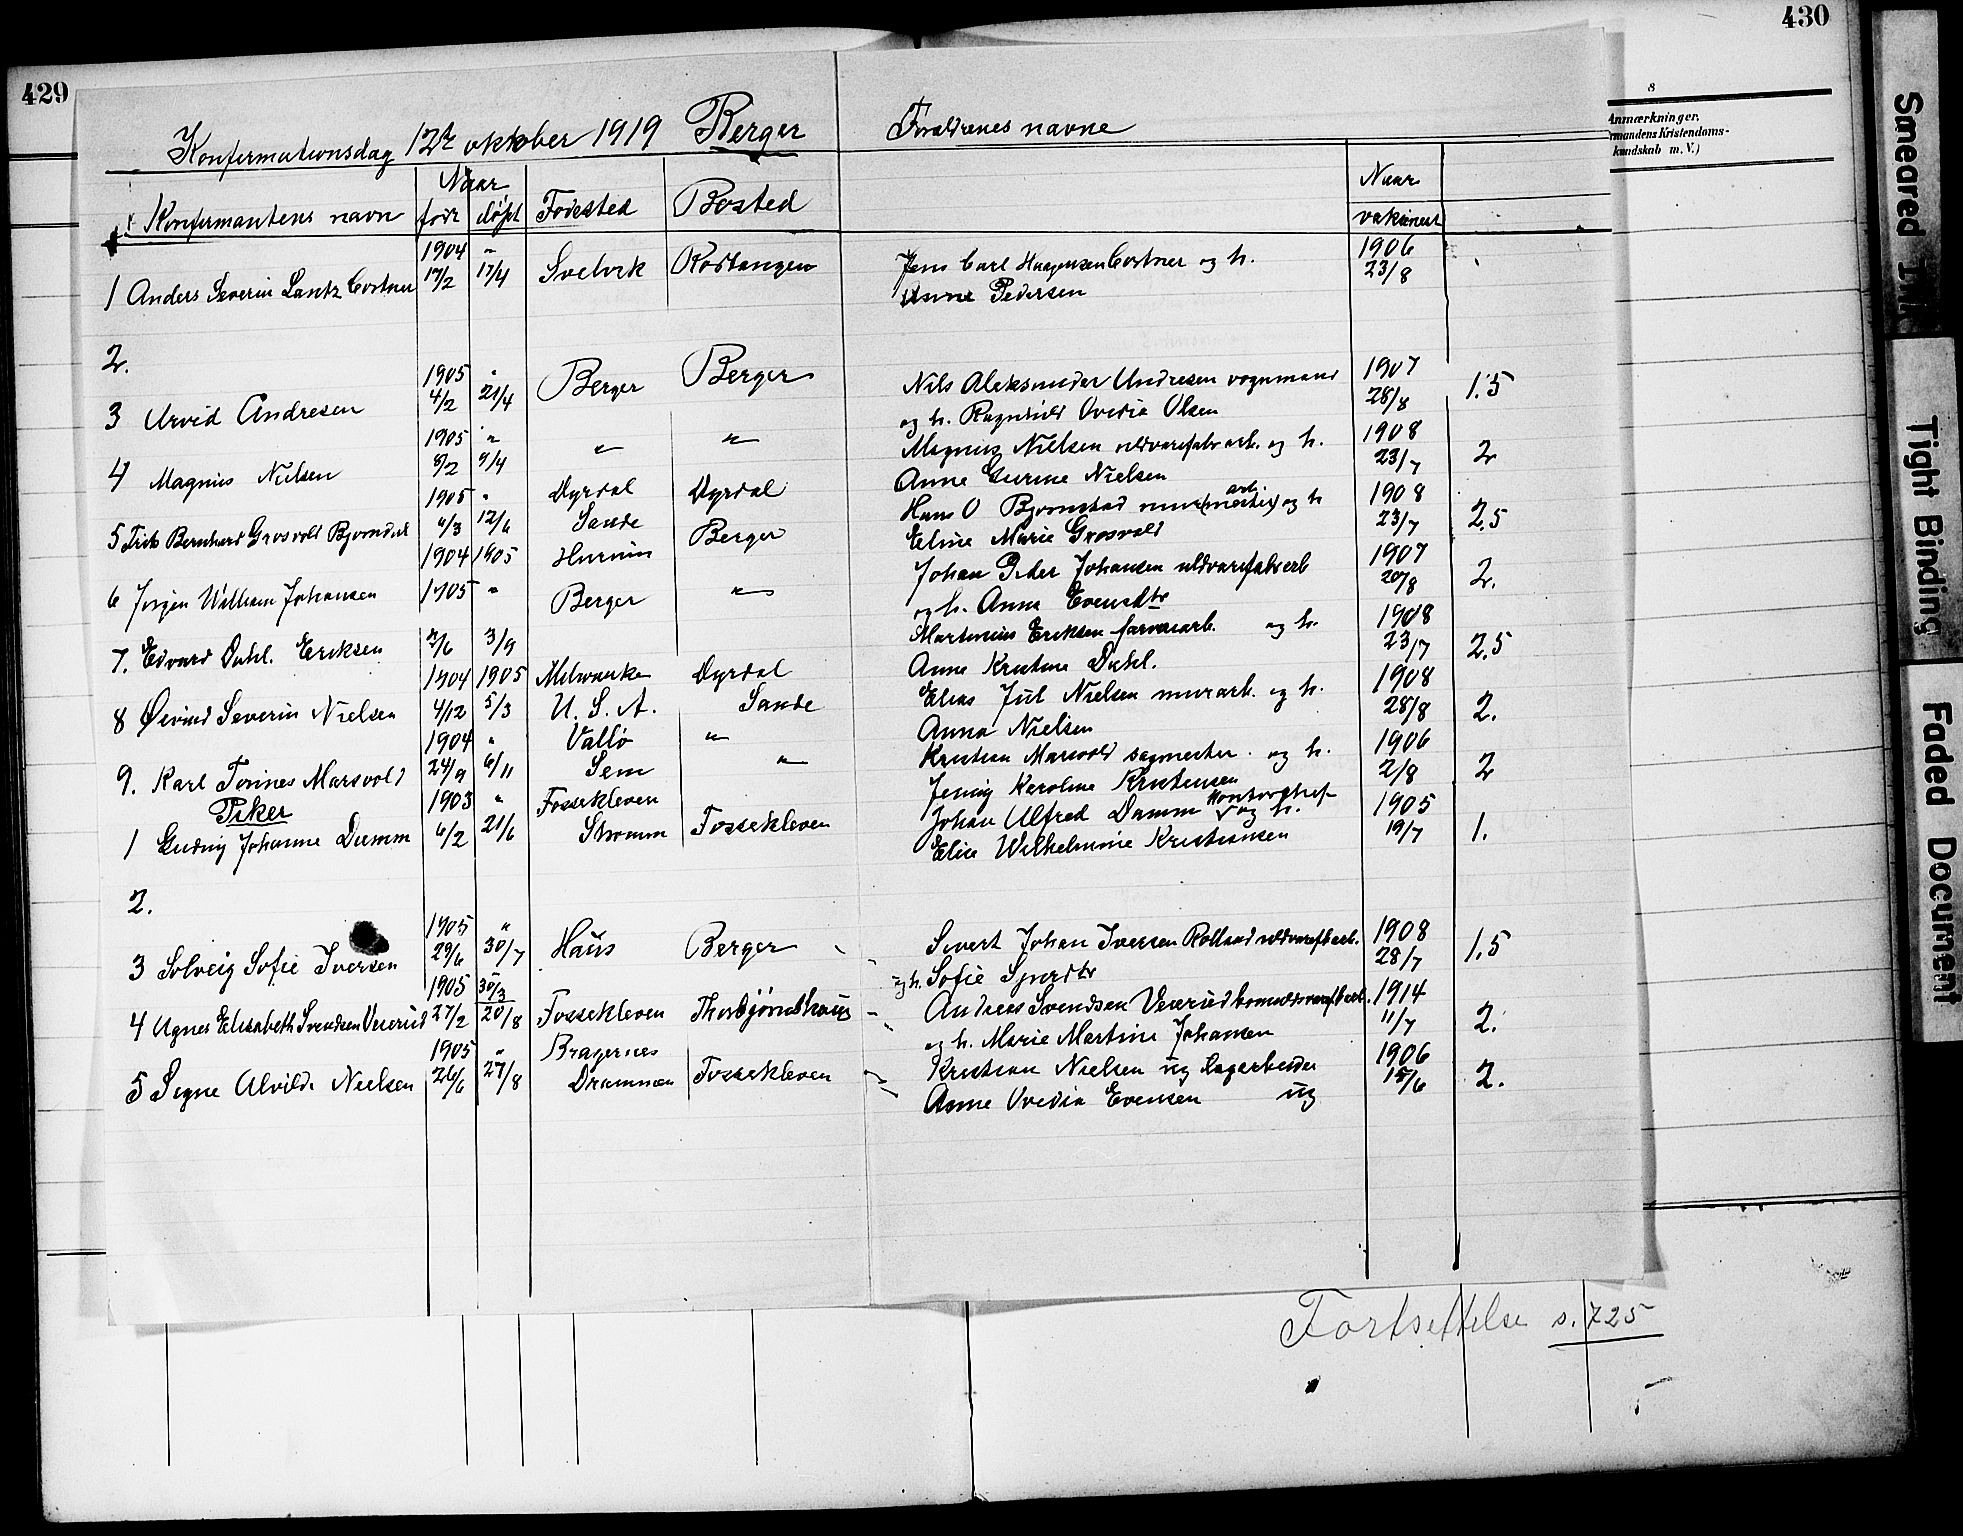 429
430
8
Anmærkninger.
mandens Kristendoms-
kundskab m. V.)
Konfirmationsdag 12te oktober 1919 Berger
Forældrenes navne
Konfirmantens navn
Naar
født døpt
Fødested
Bosted
Naar
vaksineret
1 Anders Severin Lantz Cortner 1904 17/2 " 17/4 Svelvik Rødtangen Jens Carl Haagensen Cortner og h. 1906 23/8
Anne Pedersen
2.
3 Arvid Andresen 1905 4/2 " 21/4 Berger Berger Nils Aleksander Andresen vognmand 1907 28/8 1.5
og h. Ragnhild Ovedia Olsen
4 Magnus Nielsen 1905 8/2 " 9/4 " " Magnus Nielsen uldvarefabr arb. og h. 1908 23/7 2
Anne Gurine Nielsen
5 Frits Bernhard Grosvold Bjornstad 1905 6/3 " 12/6 Dyrdal Sande Dyrdal Hans O Bjornstad mur(mester) arb. og h 1908 23/7 2.5
Eline Marie Grosvold
6 Jorgen William Johansen 1904 1905 Hurum Berger Johan Peder Johansen uldvarefabr arb 1907 20/8 2.
og h. Anna Evensdtr
7. Edvard Dahl. Eriksen 1905 2/6 " 3/9 Berger " Martinius Eriksen farveriarb. og h. 1908 23/7 2.5
Anne Kristine Dahl.
8 Øivind Severin Nielsen 1904 4/12 1905 5/3 Milwauke U. S. A. Dyrdal Sande Elias Jul Nielsen murarb. og h. 1908 28/8 2.
Anna Nielsen
9. Karl Tonnes Marsvold 1904 24/9 " 6/11 Vallø Sem " " Kristian Marsvold sagmester og h. 1906 2/8 2
Jenny Karoline Kristensen
Piker
1 Gudny Johanne Damm 1903 6/2 " 21/6 Fossekleven Strømm Fossekleven Johan Alfred Damm kontorchef og h. 1905 19/7 1.
Elise Wilhelmine Kristiansen
2.
3 Solveig Sofie Iversen 1905 29/6 " 30/7 Haus Berger Sivert Johan Iversen Rolland uldvarefbarb. 1908 28/7 1.5
og h. Sofie Sjurdtr
4 Agnes Elisabeth Svendsen Veierud 1905 27/2 30/3 20/8 Fossekleven Thorbjørnshaug Andreas Svendsen Veierud 1914 11/7 2.
og h. Marie Martine Johansen
5 Signe Alvilde Nielsen 1905 26/6 " 27/8 Bragernes Drammen Fossekleven Kristian Nielsen ug Lagerbeider 1906 15/6 2.
Anne Ovedia Evensen ug
Fortsettelse s. 725
Smeared Ink
Tight Binding
Faded Document